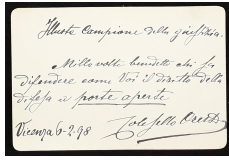 Illustre Campione della giustizia.
Mille volte benedetti chi sa
difendere come Voi il diritto della
difesa a porte aperte
Vicenza 6-2.98
Tolesello Oreste